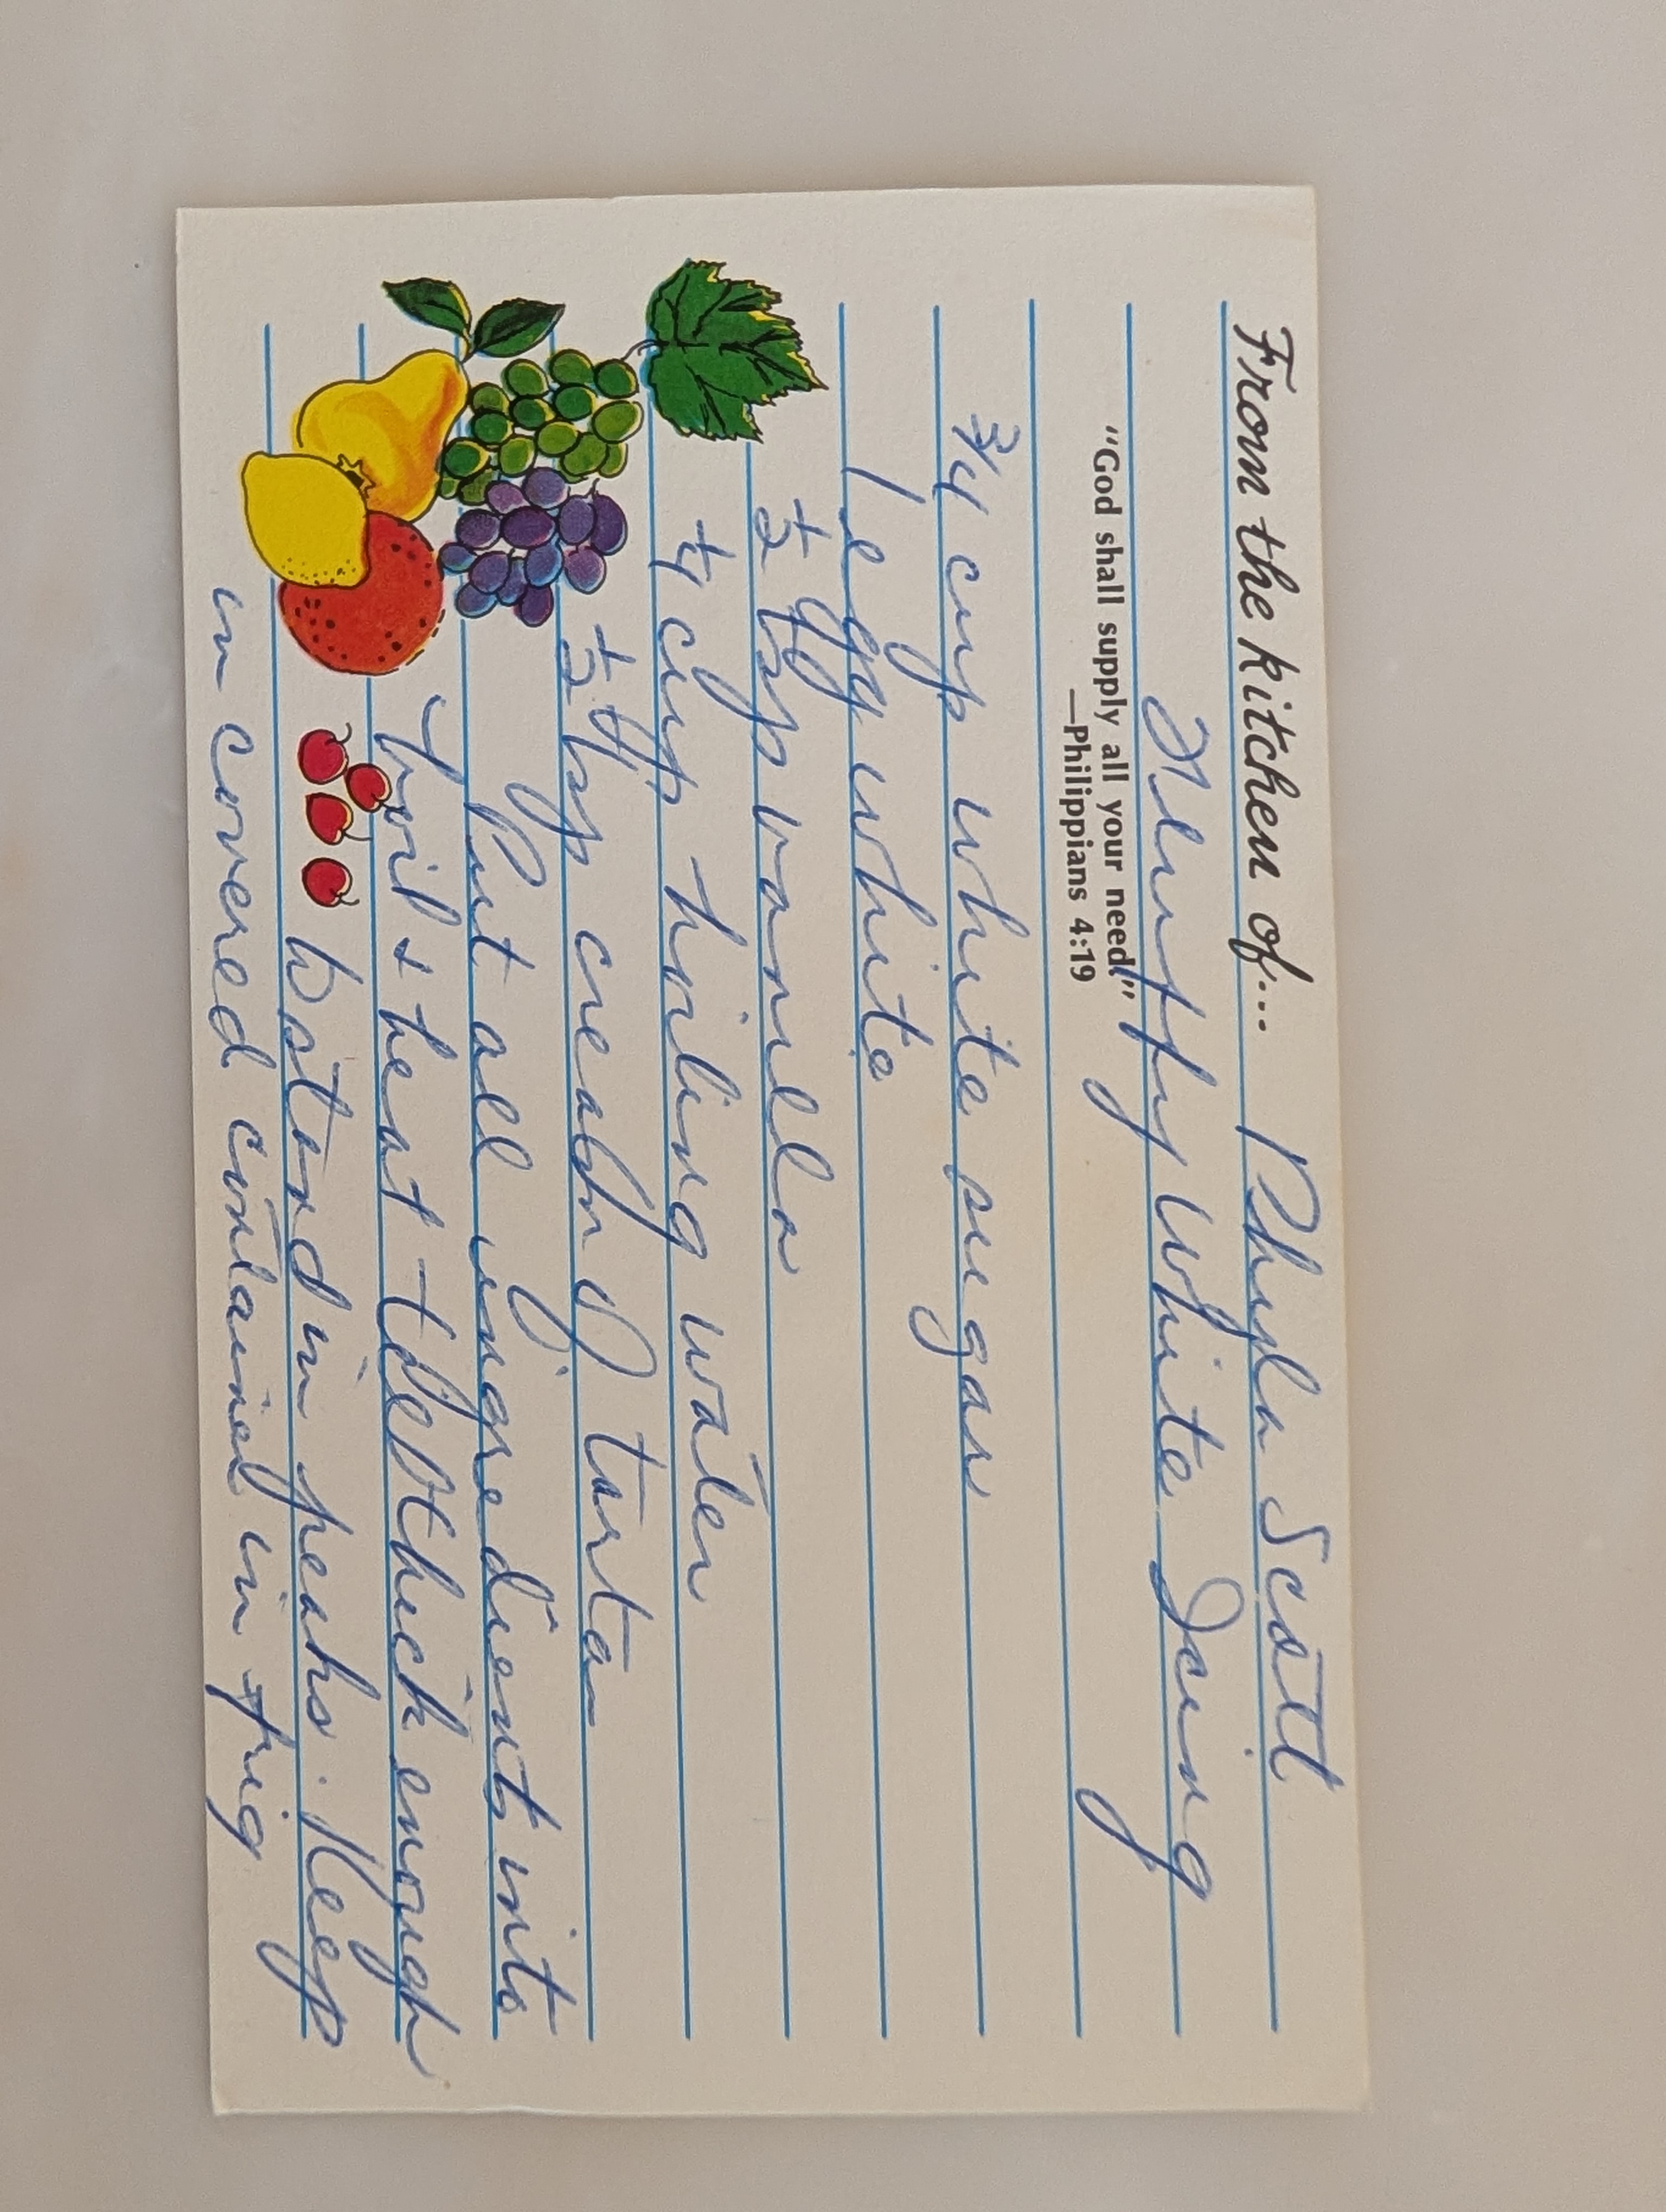 From the kitchen of... Phyla Scott
Fluffy White Icing
"God shall supply all your need."
—Philippians 4:19
3/4 cup white sugar
1 egg white
1/2 tsp vanilla
1/4 cup boiling water
1/2 tsp cream of tarta
Put all ingredients into
bowl & beat till thick enough
to stand in peaks. Keep
in covered container in frig